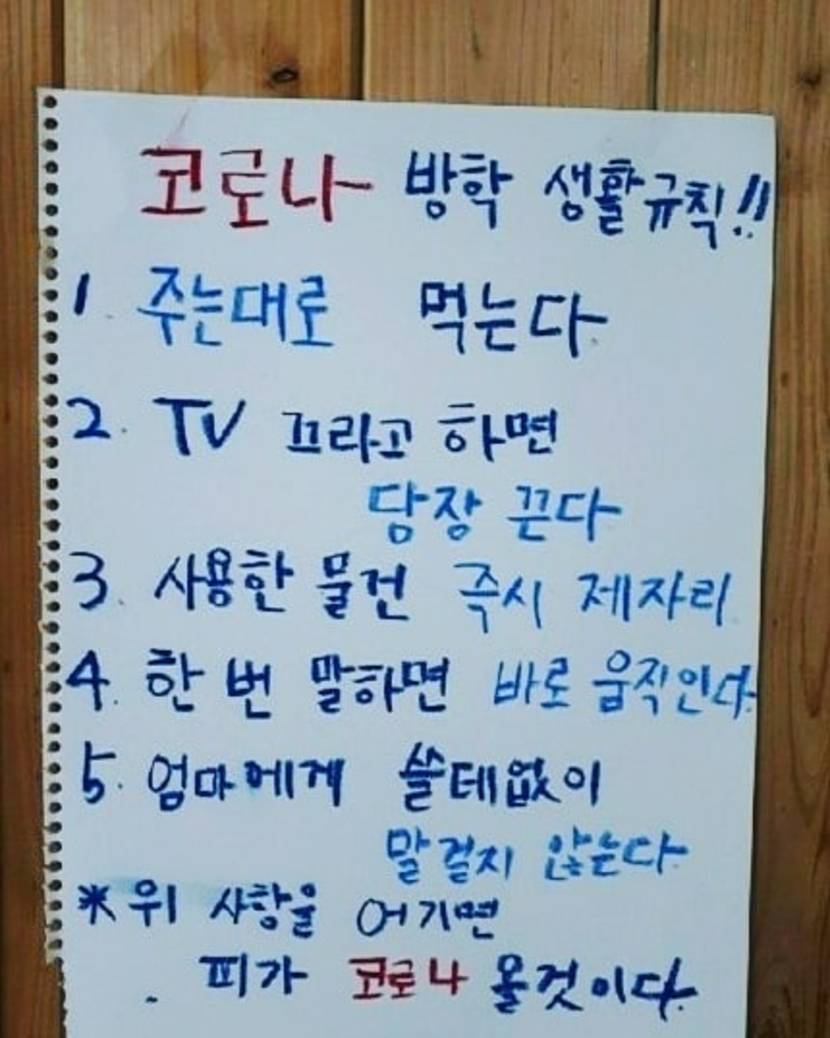 코로나 방학 생활규칙!!
1 주는대로 먹는다.
2. TV 끄라고 하면
당장 끈다
3. 사용한 물건 즉시 제자리
4. 한 번 말하면 바로 움직인다.
5. 엄마에게 쓸데없이
말걸지 않는다
* 위 사항을 어기면
피가 코로나 올것이다.